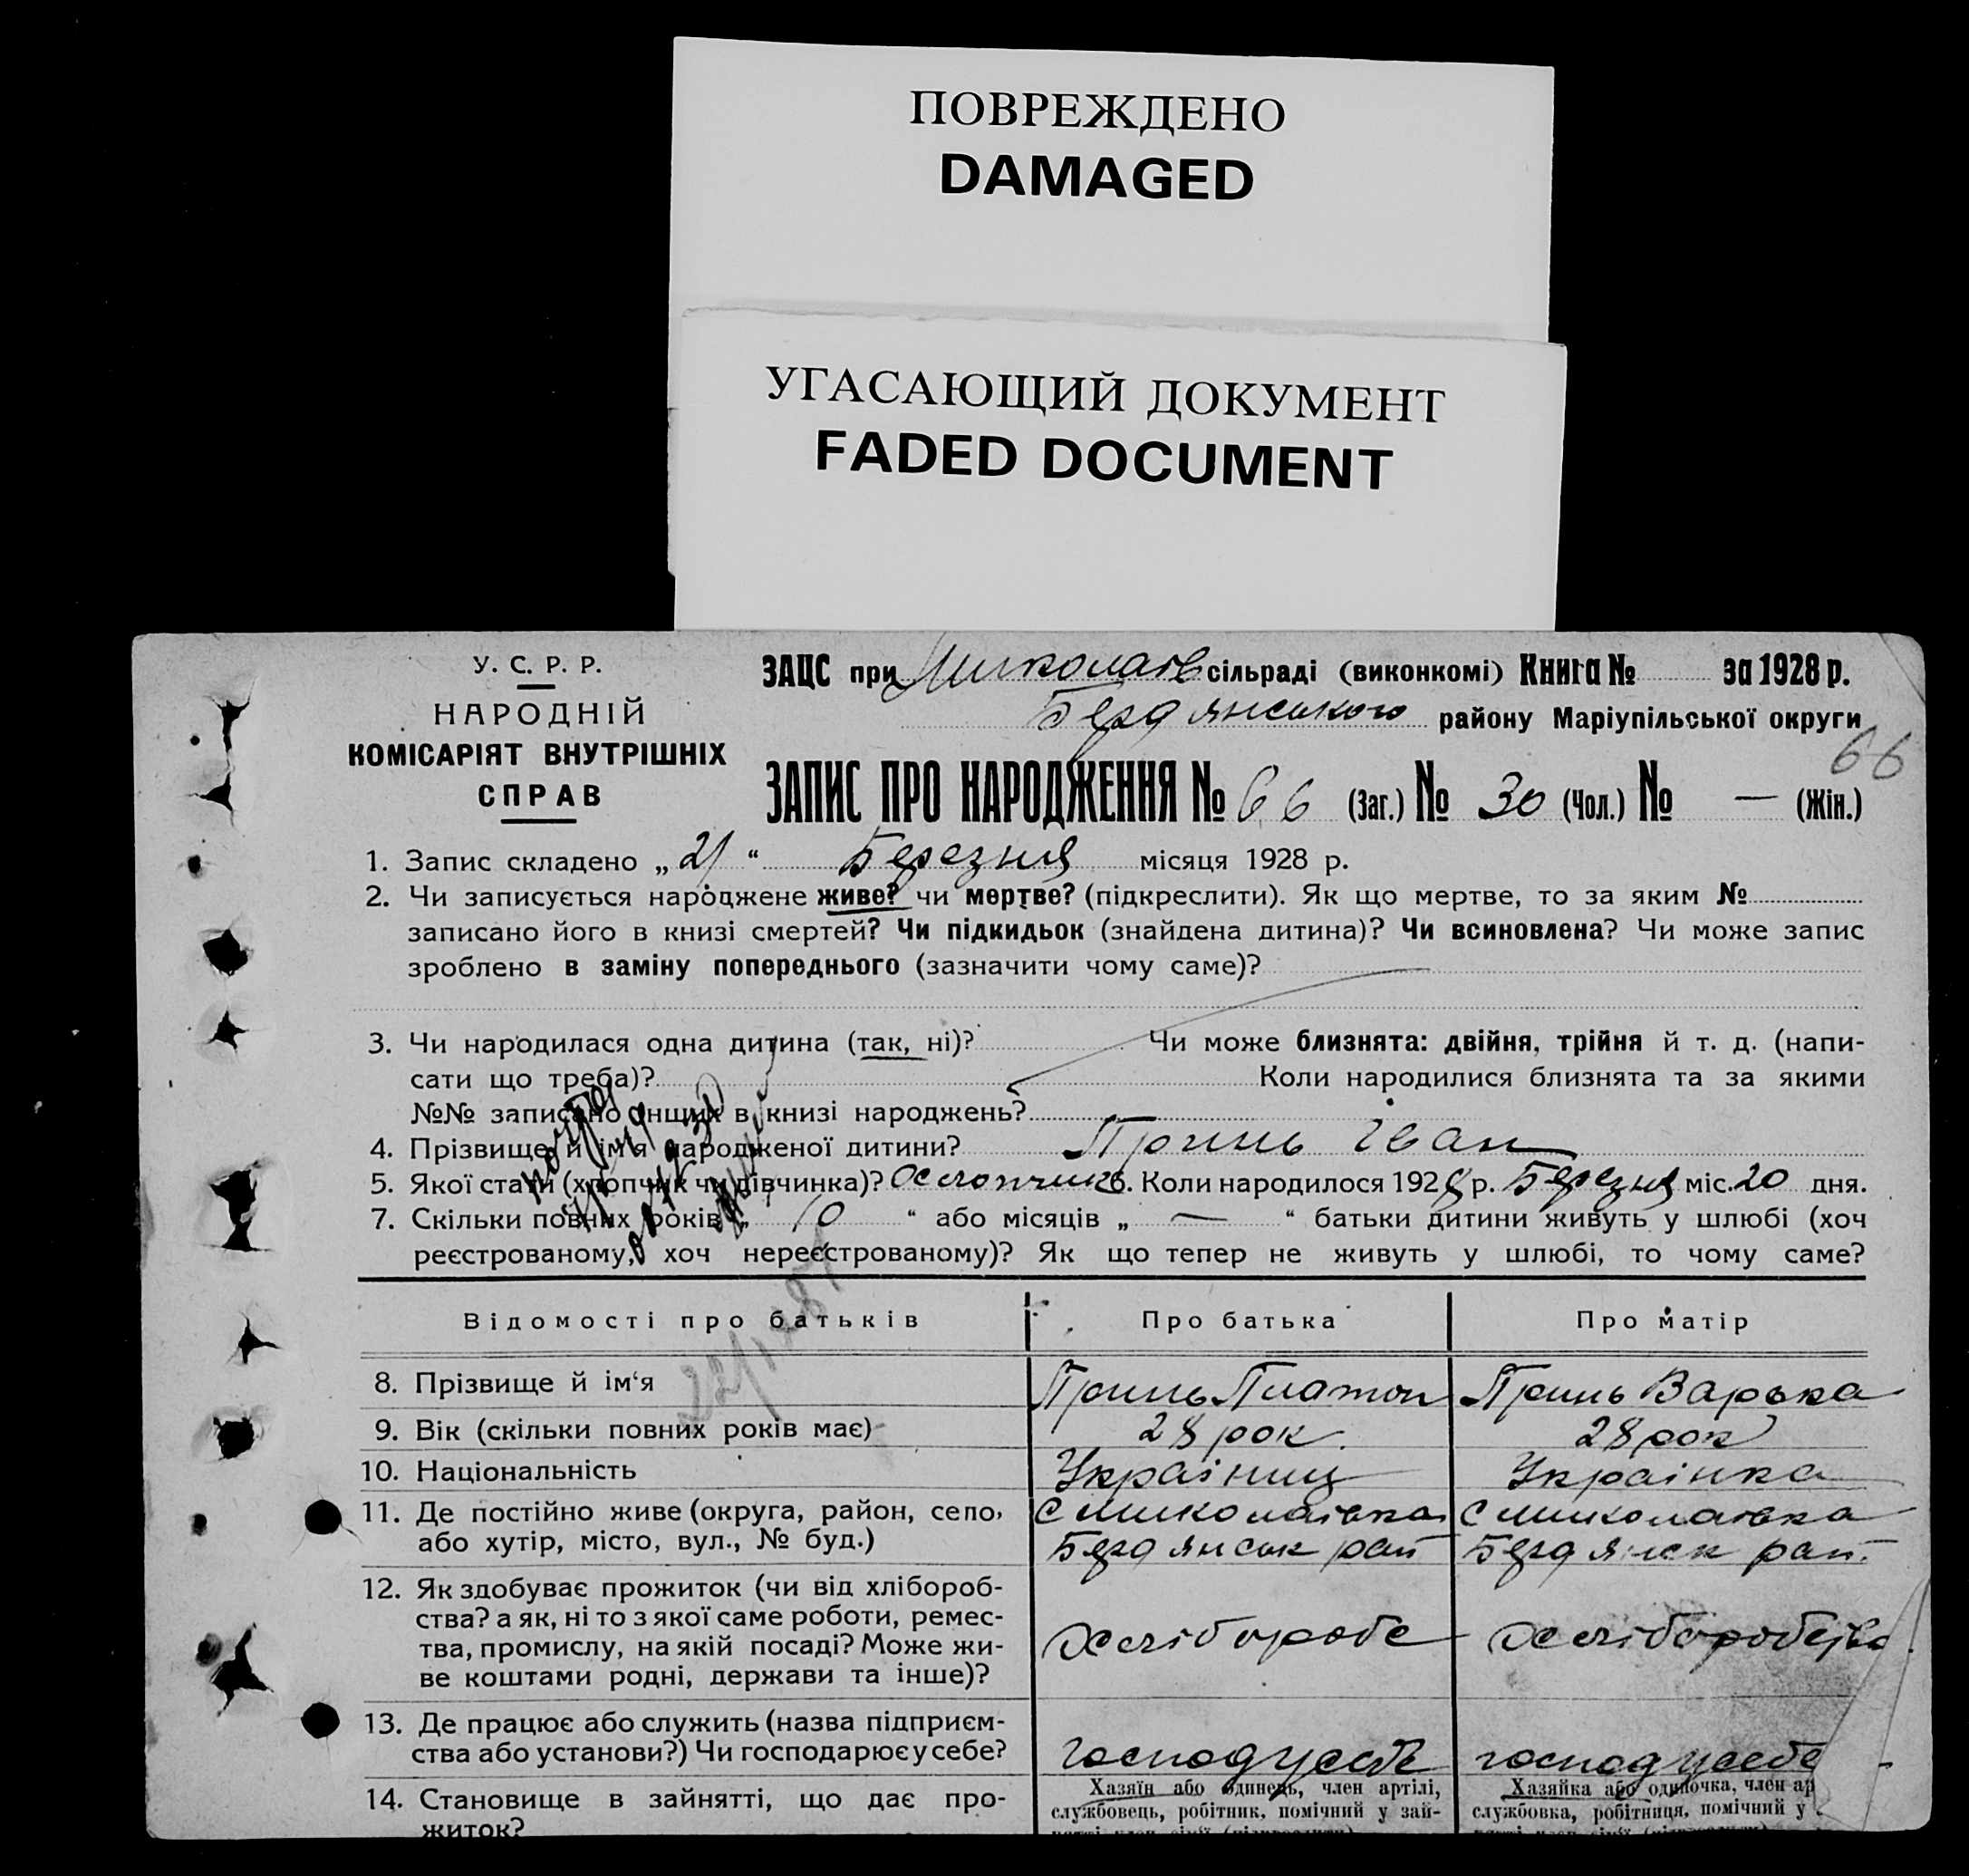 ПОВРЕЖДЕНО
DAMAGED
УГАСАЮЩИЙ ДОКУМЕНТ
FADED DOCUMENT
У. С. Р. Р.
НАРОДНІЙ
КОМІСАРІЯТ ВНУТРІШНІХ
СПРАВ
ЗАЦС при Миколаїв сільраді (виконкомі) Книга № за 1928 р.
Бердянського району Маріупільської округи
66
ЗАПИС ПРО НАРОДЖЕННЯ № 66 (Заг.) № 30 (Чол.) № — (Жін.)
1. Запис складено „ 21 “ Березня місяця 1928 р.
2. Чи записується народжене живе? чи мертве? (підкреслити). Як що мертве, то за яким №
записано його в книзі смертей? Чи підкидьок (знайдена дитина)? Чи всиновлена? Чи може запис
зроблено в заміну попереднього (зазначити чому саме)?
3. Чи народилася одна дитина (так, ні)? Чи може близнята: двійня, трійня й т. д. (напи-
сати що треба)? Коли народилися близнята та за якими
№№ записано інших в книзі народжень?
4. Прізвище й ім'я народженої дитини? Принь Іван
5. Якої стати (хлопчик чи дівчинка)? Хлопчик 6. Коли народилося 1928 р. Березня міс. 20 дня.
7. Скільки повних років „ 10 “ або місяців „ — “ батьки дитини живуть у шлюбі (хоч
реєстрованому, хоч нереєстрованому)? Як що тепер не живуть у шлюбі, то чому саме?
Відомості про батьків Про батька Про матір
8. Прізвище й ім'я Принь Платон Принь Варька
9. Вік (скільки повних років має) 28 рок. 28 рок
10. Національність Українец Українка
11. Де постійно живе (округа, район, село, С Миколаївка С Миколаївка
або хутір, місто, вул., № буд.) Бердянськ рай Бердянск рай.
12. Як здобуває прожиток (чи від хлібороб-
ства? а як, ні то з якої саме роботи, ремес-
тва, промислу, на якій посаді? Може жи- Хліборобс Хліборобство
ве коштами родні, держави та інше)?
13. Де працює або служить (назва підприєм-
ства або установи?) Чи господарює у себе? господ у себе господ у себе
14. Становище в зайнятті, що дає про- Хазяїн або одинець, член артілі, Хазяйка або одиночка, член ар
житок? службовець, робітник, помічний у зай- службовка, робітниця, помічний у